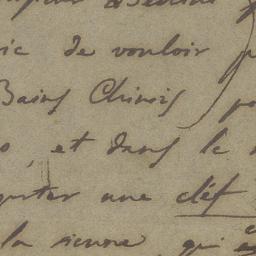 ic de vouloir
Bains Chinois
et dans le
une clef
la sienne, qui